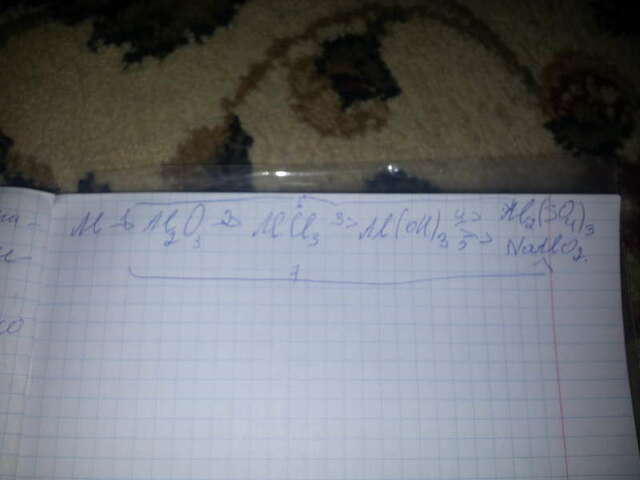 Al 1> Al2O3 2> AlCl3 3> Al(OH)3 4> Al2(SO4)3
5> NaAlO2.
7